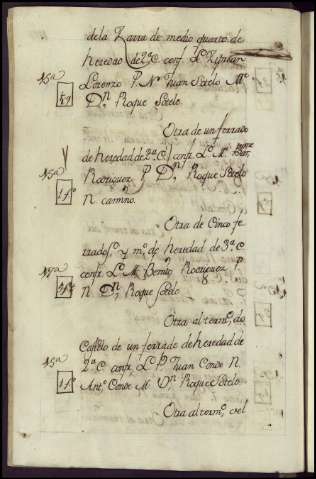 de la Zarra de medio quarto de
heredad de 2ª C conf. L.
Lorenzo P. N. Juan Sotelo M.
Dn Roque Sotelo.
Otra de un ferrado
15ª
de heredad de 2ª C conf. L. M.
Rodriguez P Dn Roque Sotelo
1fº
N camino.
Otra de Cinco fe
rrados y mº de heredad de 3ª C
conf. L. M. Benito Rodriguez P
N Dn Roque Sotelo
Otra al termº do
Castelo de un ferrado de heredad de
15ª
2ª C conf. L P. Juan Conde N.
1fº
Antº Conde M. Dn Roque Sotelo
Otra al termº del